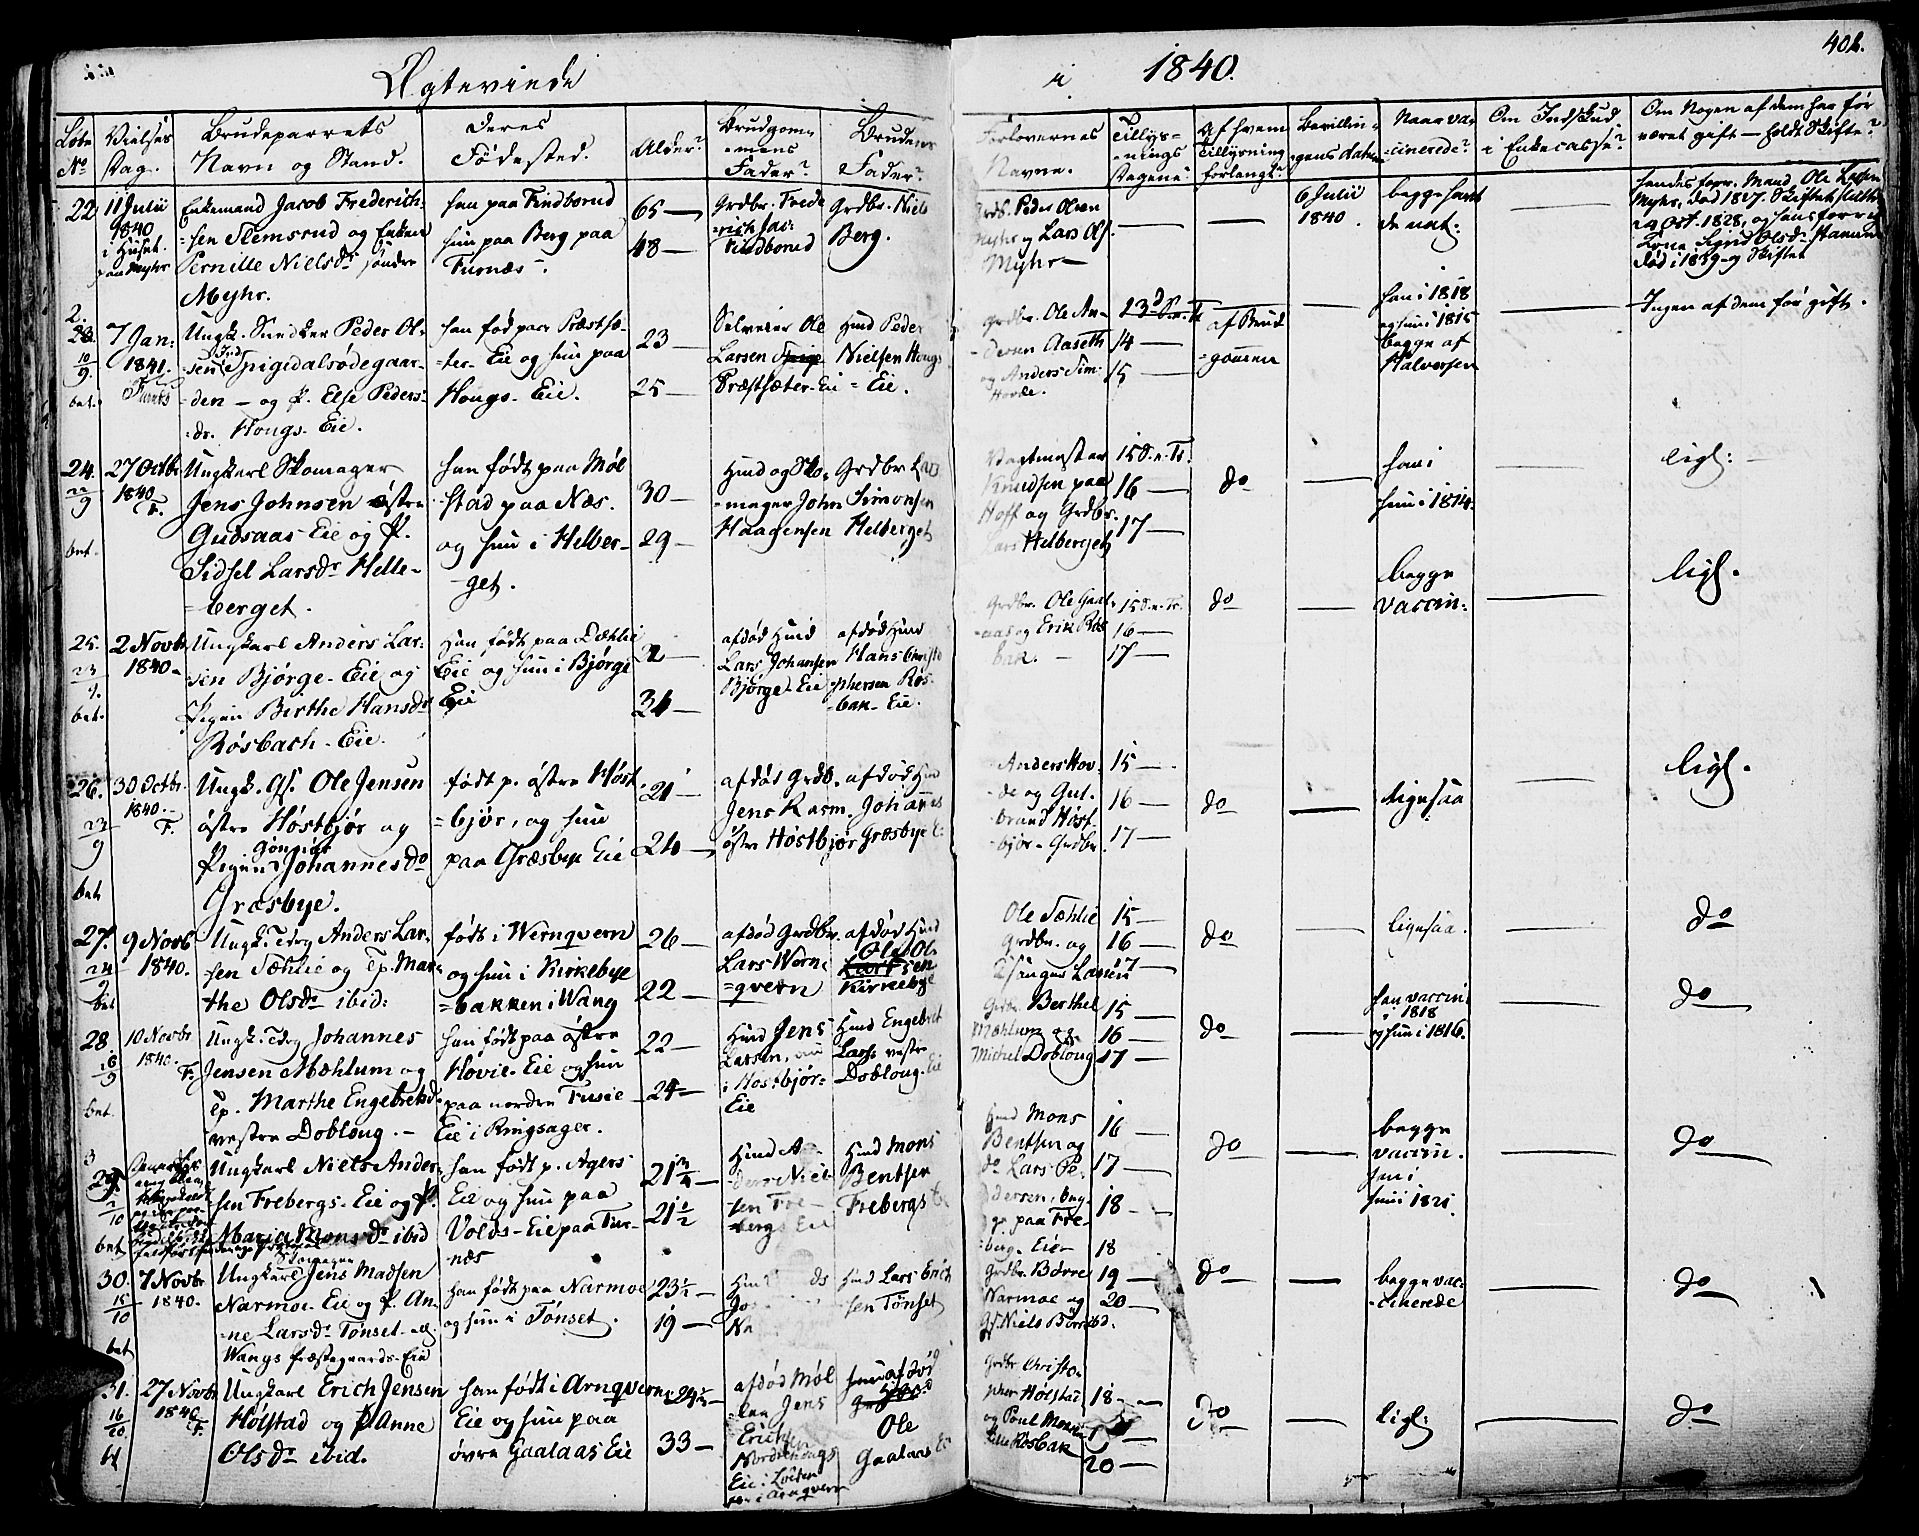 Ægteviede
i 1840.
402.
Løbe No
Vielses Dag.
Brudeparrets Navn og Stand.
Deres Fødested.
Alder?
Brudgommens Fader?
Brudens Fader?
Forlovernes Navne.
Tillysningsdagene?
Af hvem Tillysning forlangt?
Bevillingens datum
Naar vaccinerede?
Om Indskud i Enkecasse?
Om Nogen af dem har før været gift — holdt Skifte?
22
11 Julii
1840
i Huset
paa Myhr
Enkemand Jacob Frederich-
sen Stemsrud og Enken
Pernille Nielsdr søndre
Myhr.
han paa Findborud
hun paa Berg paa
Furnæs.
65 —
48 —
Grdbr. Frede
Findborud
Grdbr. Niels
Berg.
Grdb. Peder Olsen
Myhr og Lars Ols.
Myhr —
6 Julii
1840.
begge have
de nat:
hendes forr. Mand Ole Larsen
Myhr, død 1827. Skiftet sluttet
29 Oct. 1828, og hans forrige
Kone Sigrid Olsdr
død i 1839 og Skiftet
23
10/9
bet.
7 Jan:
1841.
Furnæs
Ungk. Snedker Peder Ol-
sen Spigdalsødegaar-
den — og P. Else Peders-
dr. Hougs-Eie.
han fød paa Præstsæ-
ter-Eie og hun paa
Hougs-Eie.
23 —
25 —
Selveier Ole
Larsen
Præstsæter-Ei
Hmd Peder
Nielsen Hougs
-Eie.
Grdbr. Ole An-
dersen Aaseth
og Anders Sim.
Hovde.
13 d S. e. Tr
14 —
15 —
af Brud
-gommen
han i 1818
og hun i 1815
begge af
Halversen
Ingen af dem før gift.
24.
22/9
bet.
27 Octbr
1840
F.
Ungkarl Skomager
Jens Johnsen østre
Gudsaas Eie og P.
Sidsel Larsdr Helle-
berget.
han født paa Møl
stad paa Næs.
og hun i Helber-
get.
30 —
29 —
Hmd og Sko-
mager John
Haagensen
Grdbr Lars
Simonsen
Helberget
Vagtmester
Knudsen paa
Hoff og Grdbr.
Lars Helberget
15 S. e. Tr.
16 —
17 —
do
han i
hun i 1814.
ligl: —
25.
23/9.
bet.
2 Novbr
1840 —
Ungkarl Anders Lar-
sen Bjørge-Eie og
Pigen Berthe Hansdr
Røsbach-Eie.
Han født paa Dæhlie
Eie og hun i Bjørge
Eie
32 —
34 —
afdød Hmd
Lars Johansen
Bjørge-Eie
afdød Hmd
Hans Christo
phersen Røs-
bak-Eie.
Grdbr. Ole Gaal-
aas og Erik Røs
bak. —
15 S. e. Tr.
16 —
17 —
do
begge
vaccin:
ligl.
26.
23/9
bet
30 Octbr.
1840.
F.
Ungk. Gs. Ole Jensen
østre Høstbjør og
Pigen Gønnor Johannesdr
Græsbye.
født p. østre Høst
-bjør, og hun
paa Græsbye Eie
21 —
24 —
afdød Grdb.
Jens Rasm.
østre Høstbjør
afdød Hmd
Johannes
Græsbye E:
Anders Hov-
de og Gul-
brand Høst-
bjør-Grdbr.
15 —
16 —
17 —
do
ligesaa
ligl.
27.
24/9
bet
9 Novb
1840.
Ungk. Tdrg Anders Lar-
sen Sæhlie og Tp. Mar-
the Olsdr ibid:
født i Wernqvern
og hun i Kirkebye
-bakken i Wang
26 —
22 —
afdød Grdbr.
Lars Wern-
-qvern
afdød Hmd
Ole Ol-
sen
Kirkebye
Ole Sæhlie
Grdbr. og
Larsen
15 —
16 —
17
do
ligesaa.
do
28.
18/9
bet.
10 Novbr
1840.
F.
Ungk. Tdrg Johannes
Jensen Mæhlum og
Tp. Marthe Engebretsd.
vestre Doblong. —
han født paa østre
Hovie-Eie og hun
paa nordre Tusie —
Eie i Ringsager.
22 —
24 —
Hmd Jens
Larsen, nu
i Høstbjør-
Eie
Hmd Engebret
Lars. vestre
Doblong-Eie
Grdbr. Berthel
Mæhlum og
Michel Doblong
15 —
16 —
17 —
do
han vaccin
i 1818
og hun i 1816.
do
29.
2/10
bet
Ungkarl Niels Ander-
sen Frebergs-Eie og P.
Maria Monsdr ibid
han født p. Agers
Eie og hun paa
Volds-Eie paa Fur-
næs
21 3/4 —
21 1/2
Hmd An-
ders Niel-
sen Fre-
bergs Eie
Hmd Mons
Bentsen
Frebergs E
Hmd Mons
Bentsen og
do Lars Pe-
dersen, beg-
ge paa Fre-
berg-Eie —
16 —
17 —
18 —
do
begge
vaccin.
han i
hun i 1821.
do
30.
15/10
bet
7 Novbr
1840.
Skomager
Ungkarl Jens Madsen
Narmoe-Eie og P. An-
ne Larsdr Tønset
Wangs Præstegaards-Eie
han født paa Narmoe
og hun i Tønset.
23 1/2 —
19 —
Hmd Lars Erich
sen Tønset
Grdbr. Børre
Narmoe og
Gs. Niels Børresd.
18
19 —
20 —
do
begge vac-
-cinerede
do
31.
16/10.
bt
27 Novbr
1840
F.
Ungkarl Erich Jensen
Hølstad og P Anne
Olsdr ibid.
han født i Arnqvern
Eie og hun paa
øvre Gaalaas Eie
24 1/2 —
33 —
afdød Møl
ler Jens
Erichs.
Nordrehougs
Eie i Løiten
før i Arnqvern
hun afdød
Ole
Gaalaas E
Grdbr Christo-
pher Hølstad
og Poul Monsen
Røsbak
18 —
20 —
do
ligl:
do